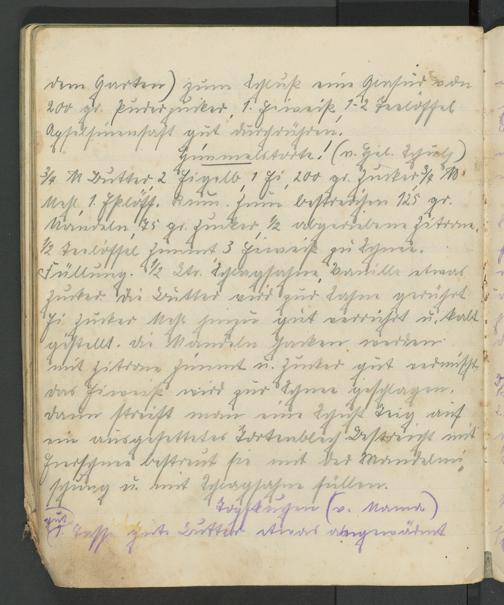 dem Garten) zum Schluß eine Glasur von
200 gr. Puderzucker, 1. Eiweiß, 1-2 Teelöffel
Apfelsinensaft gut durchrühren.
Himmelstorte! (v. Schulz)
3/4 Butter 2 Eigelb, 1 Ei, 200 gr. Zucker, 3/4
Mehl 1. Eßlöff. Rum. Zum bestreichen 125 gr.
Mandeln, 75 gr. Zucker, 1/2 abgeriebene Zitrone,
1/2 Teelöffel Zimmt 3 Eiweiß zu Schnee.
Füllung. 1/2 Ltr. Schlagsahne, Vanille etwas
Zucker Die Butter wird zur Sahne gerührt
Ei Zucker Mehl hinzu gut verrührt u. kalt
gestellt. Die Mandeln hacken werden
mit Zitrone Zimmt u. Zucker gut vermischt
das Eiweiß wird zur Schnee geschlagen.
dann streift man eine Schicht Teig auf
ein ausgefettetes Tortenblech bestreicht mit
Eierschnee bestreut sie mit der Mandelmi,
schung u. mit Schlagsahne füllen.
Topfkuchen (v. Mama)
(gut) 1. Tasse gute Butter etwas angewärmt